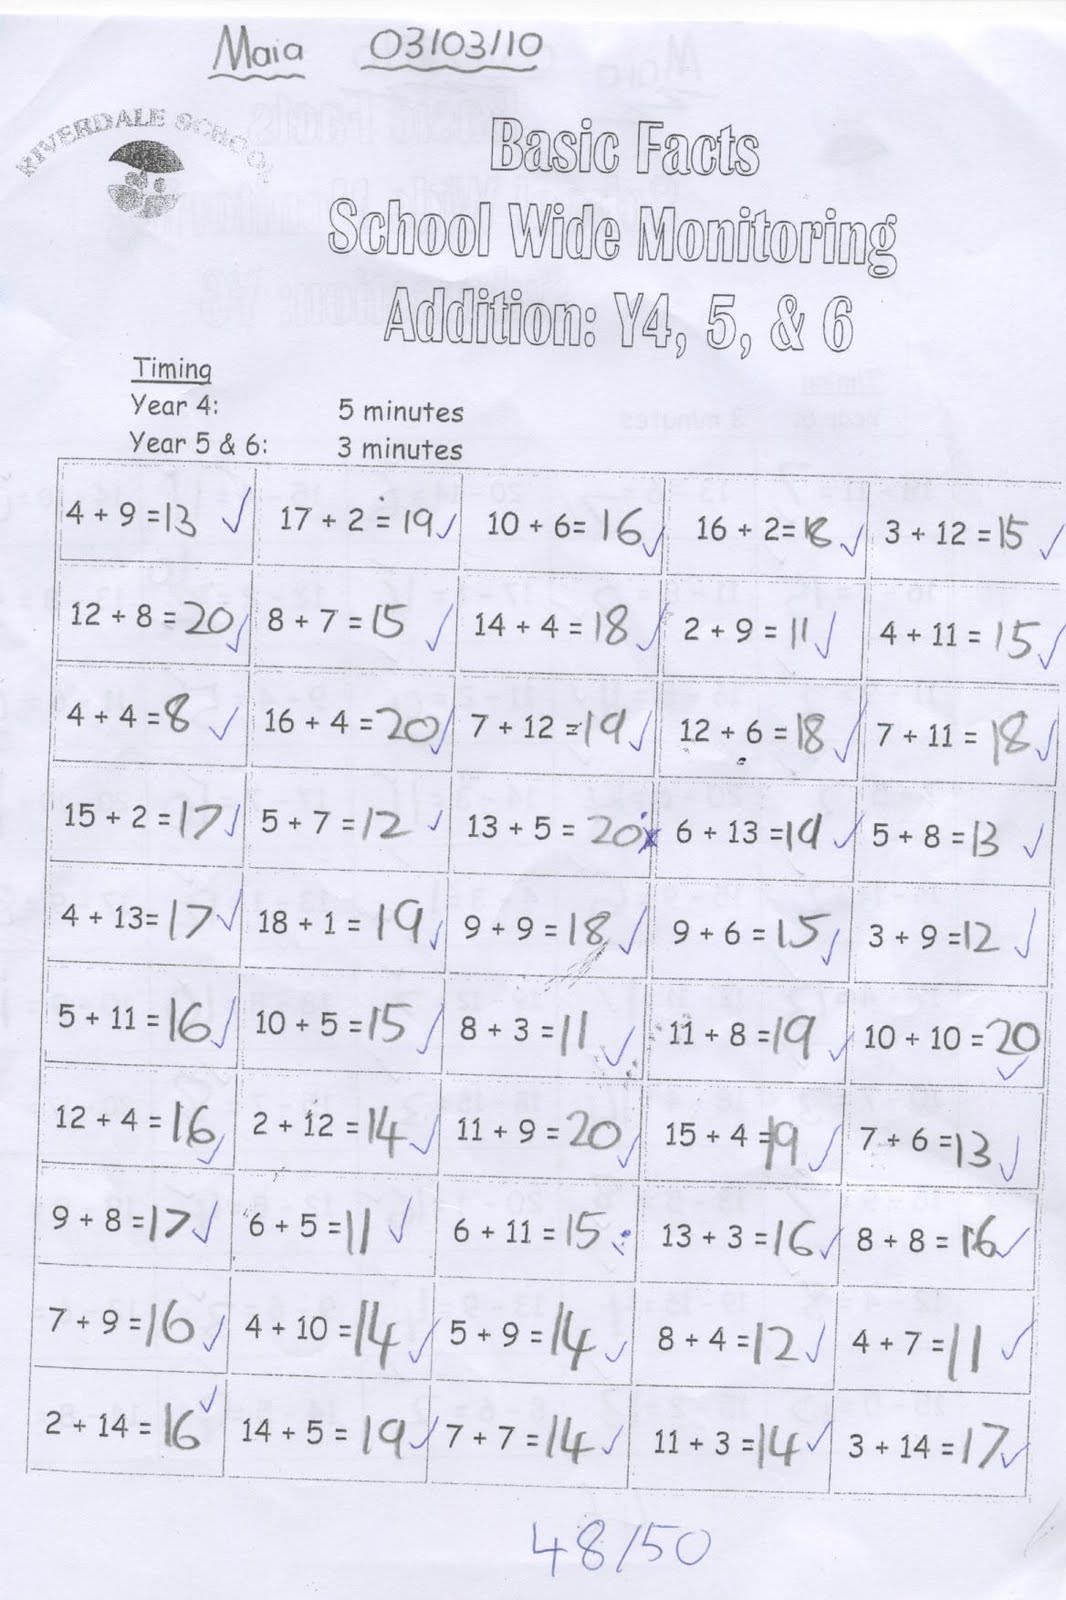 Maia 03/03/10
RIVERDALE SCHOOL
Basic Facts
School Wide Monitoring
Addition: Y4, 5, & 6
Timing
Year 4: 5 minutes
Year 5 & 6: 3 minutes
4 + 9 = 13 17 + 2 = 19 10 + 6 = 16 16 + 2 = 18 3 + 12 = 15
12 + 8 = 20 8 + 7 = 15 14 + 4 = 18 2 + 9 = 11 4 + 11 = 15
4 + 4 = 8 16 + 4 = 20 7 + 12 = 19 12 + 6 = 18 7 + 11 = 18
15 + 2 = 17 5 + 7 = 12 13 + 5 = 20 6 + 13 = 19 5 + 8 = 13
4 + 13 = 17 18 + 1 = 19 9 + 9 = 18 9 + 6 = 15 3 + 9 = 12
5 + 11 = 16 10 + 5 = 15 8 + 3 = 11 11 + 8 = 19 10 + 10 = 20
12 + 4 = 16 2 + 12 = 14 11 + 9 = 20 15 + 4 = 19 7 + 6 = 13
9 + 8 = 17 6 + 5 = 11 6 + 11 = 15 13 + 3 = 16 8 + 8 = 16
7 + 9 = 16 4 + 10 = 14 5 + 9 = 14 8 + 4 = 12 4 + 7 = 11
2 + 14 = 16 14 + 5 = 19 7 + 7 = 14 11 + 3 = 14 3 + 14 = 17
48/50